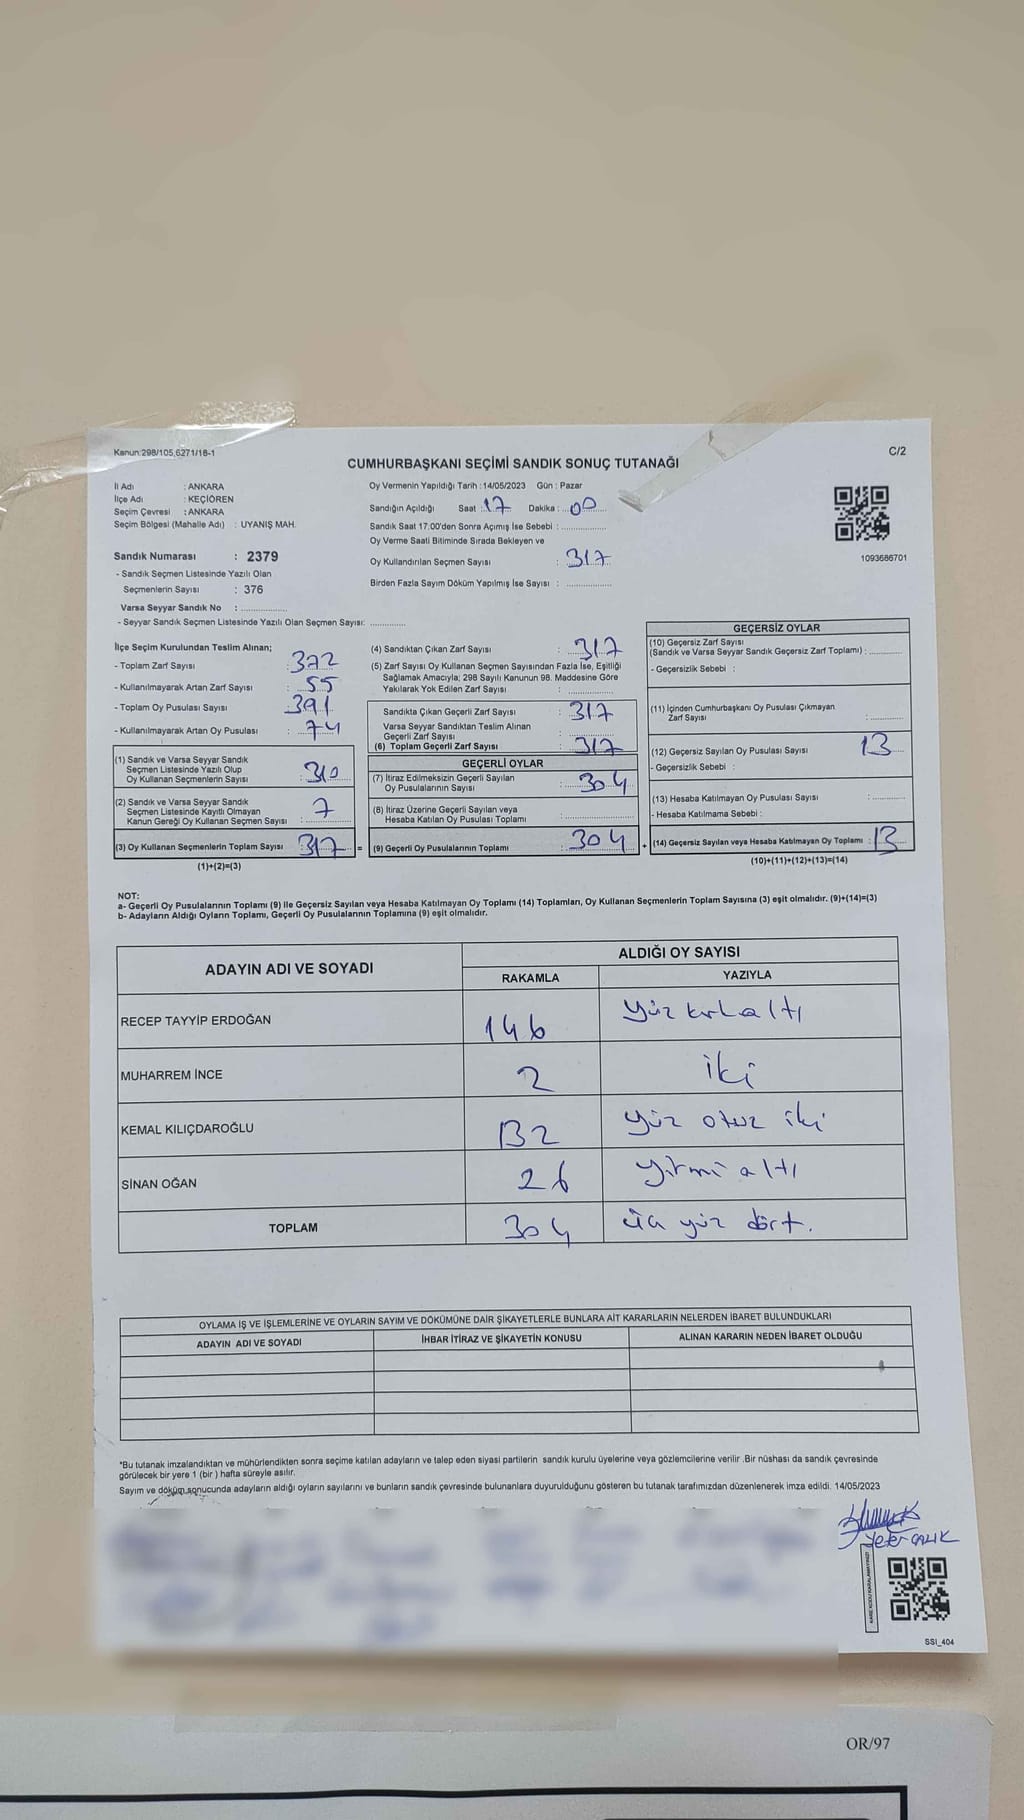 Kanun:298/105,6271/18-1
C/2
CUMHURBAŞKANI SEÇİMİ SANDIK SONUÇ TUTANAĞI
İl Adı : ANKARA
İlçe Adı : KEÇİÖREN
Seçim Çevresi : ANKARA
Seçim Bölgesi (Mahalle Adı) : UYANIŞ MAH.
Sandık Numarası : 2379
- Sandık Seçmen Listesinde Yazılı Olan
Seçmenlerin Sayısı : 376
Varsa Seyyar Sandık No : ..............
- Seyyar Sandık Seçmen Listesinde Yazılı Olan Seçmen Sayısı: ............
Oy Vermenin Yapıldığı Tarih : 14/05/2023 Gün : Pazar
Sandığın Açıldığı Saat : 17 Dakika : 00
Sandık Saat 17:00'den Sonra Açımış İse Sebebi : ..............
Oy Verme Saati Bitiminde Sırada Bekleyen ve
Oy Kullandırılan Seçmen Sayısı : 317
Birden Fazla Sayım Döküm Yapılmış İse Sayısı : ..............
1093686701
İlçe Seçim Kurulundan Teslim Alınan;
- Toplam Zarf Sayısı : 372
- Kullanılmayarak Artan Zarf Sayısı : 55
- Toplam Oy Pusulası Sayısı : 391
- Kullanılmayarak Artan Oy Pusulası : 74
(1) Sandık ve Varsa Seyyar Sandık
Seçmen Listesinde Yazılı Olup
Oy Kullanan Seçmenlerin Sayısı : 310
(2) Sandık ve Varsa Seyyar Sandık
Seçmen Listesinde Kayıtlı Olmayan
Kanun Gereği Oy Kullanan Seçmen Sayısı : 7
(3) Oy Kullanan Seçmenlerin Toplam Sayısı : 317 =
(1)+(2)=(3)
(4) Sandıktan Çıkan Zarf Sayısı : 317
(5) Zarf Sayısı Oy Kullanan Seçmen Sayısından Fazla İse, Eşitliği
Sağlamak Amacıyla; 298 Sayılı Kanunun 98. Maddesine Göre
Yakılarak Yok Edilen Zarf Sayısı : ..............
Sandıkta Çıkan Geçerli Zarf Sayısı : 317
Varsa Seyyar Sandıktan Teslim Alınan
Geçerli Zarf Sayısı : ..............
(6) Toplam Geçerli Zarf Sayısı : 317
GEÇERLİ OYLAR
(7) İtiraz Edilmeksizin Geçerli Sayılan
Oy Pusulalarının Sayısı : 304
(8) İtiraz Üzerine Geçerli Sayılan veya
Hesaba Katılan Oy Pusulası Toplamı : ..............
(9) Geçerli Oy Pusulalarının Toplamı : 304 +
GEÇERSİZ OYLAR
(10) Geçersiz Zarf Sayısı
(Sandık ve Varsa Seyyar Sandık Geçersiz Zarf Toplamı) : ............
- Geçersizlik Sebebi :
(11) İçinden Cumhurbaşkanı Oy Pusulası Çıkmayan
Zarf Sayısı : ............
(12) Geçersiz Sayılan Oy Pusulası Sayısı : 13
- Geçersizlik Sebebi :
(13) Hesaba Katılmayan Oy Pusulası Sayısı : ............
- Hesaba Katılmama Sebebi :
(14) Geçersiz Sayılan veya Hesaba Katılmayan Oy Toplamı : 13
(10)+(11)+(12)+(13)=(14)
NOT:
a- Geçerli Oy Pusulalarının Toplamı (9) İle Geçersiz Sayılan veya Hesaba Katılmayan Oy Toplamı (14) Toplamları, Oy Kullanan Seçmenlerin Toplam Sayısına (3) eşit olmalıdır. (9)+(14)=(3)
b- Adayların Aldığı Oyların Toplamı, Geçerli Oy Pusulalarının Toplamına (9) eşit olmalıdır.
ADAYIN ADI VE SOYADI ALDIĞI OY SAYISI
RAKAMLA YAZIYLA
RECEP TAYYİP ERDOĞAN 146 Yüz kırk altı
MUHARREM İNCE 2 iki
KEMAL KILIÇDAROĞLU 132 Yüz otuz iki
SİNAN OĞAN 26 Yirmi altı
TOPLAM 304 üç yüz dört.
OYLAMA İŞ VE İŞLEMLERİNE VE OYLARIN SAYIM VE DÖKÜMÜNE DAİR ŞİKAYETLERLE BUNLARA AİT KARARLARIN NELERDEN İBARET BULUNDUKLARI
ADAYIN ADI VE SOYADI İHBAR İTİRAZ VE ŞİKAYETİN KONUSU ALINAN KARARIN NEDEN İBARET OLDUĞU
*Bu tutanak imzalandıktan ve mühürlendikten sonra seçime katılan adayların ve talep eden siyasi partilerin sandık kurulu üyelerine veya gözlemcilerine verilir .Bir nüshası da sandık çevresinde
görülecek bir yere 1 (bir ) hafta süreyle asılır.
Sayım ve döküm sonucunda adayların aldığı oyların sayılarını ve bunların sandık çevresinde bulunanlara duyurulduğunu gösteren bu tutanak tarafımızdan düzenlenerek imza edildi. 14/05/2023
SSI_404
OR/97